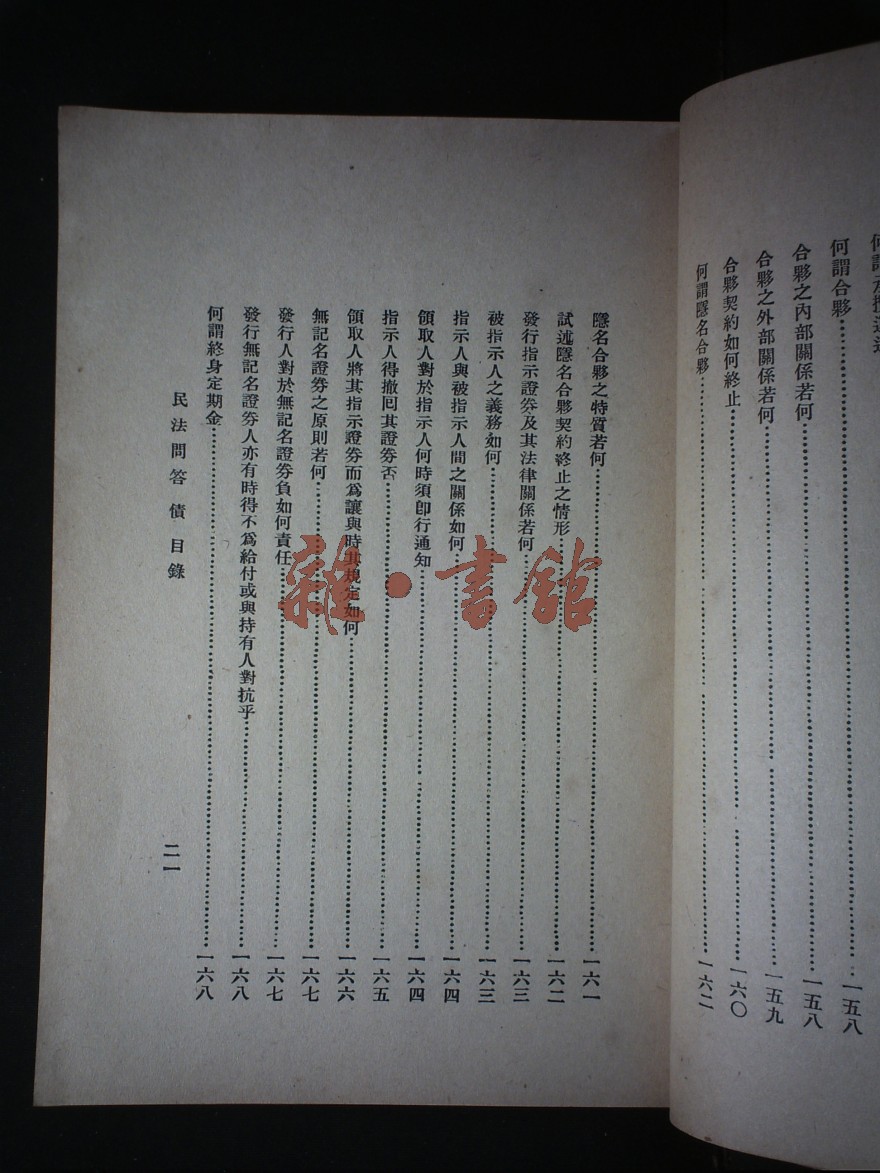 何謂合夥……一五八
合夥之內部關係若何……一五八
合夥之外部關係若何……一五九
合夥契約如何終止……一六〇
何謂隱名合夥……一六二
隱名合夥之特質若何……一六一
試述隱名合夥契約終止之情形……一六二
發行指示證券及其法律關係若何……一六三
被指示人之義務如何……一六三
指示人與被指示人間之關係如何……一六四
領取人對於指示人何時須卽行通知……一六四
指示人得撤囘其證券否……一六五
領取人將其指示證券而爲讓與時其規定如何……一六六
無記名證券之原則若何……一六七
發行人對於無記名證券負如何責任……一六七
發行無記名證券人亦有時得不爲給付或與持有人對抗乎……一六八
何謂終身定期金……一六八
民法問答 債 目錄
二一
雜·書館